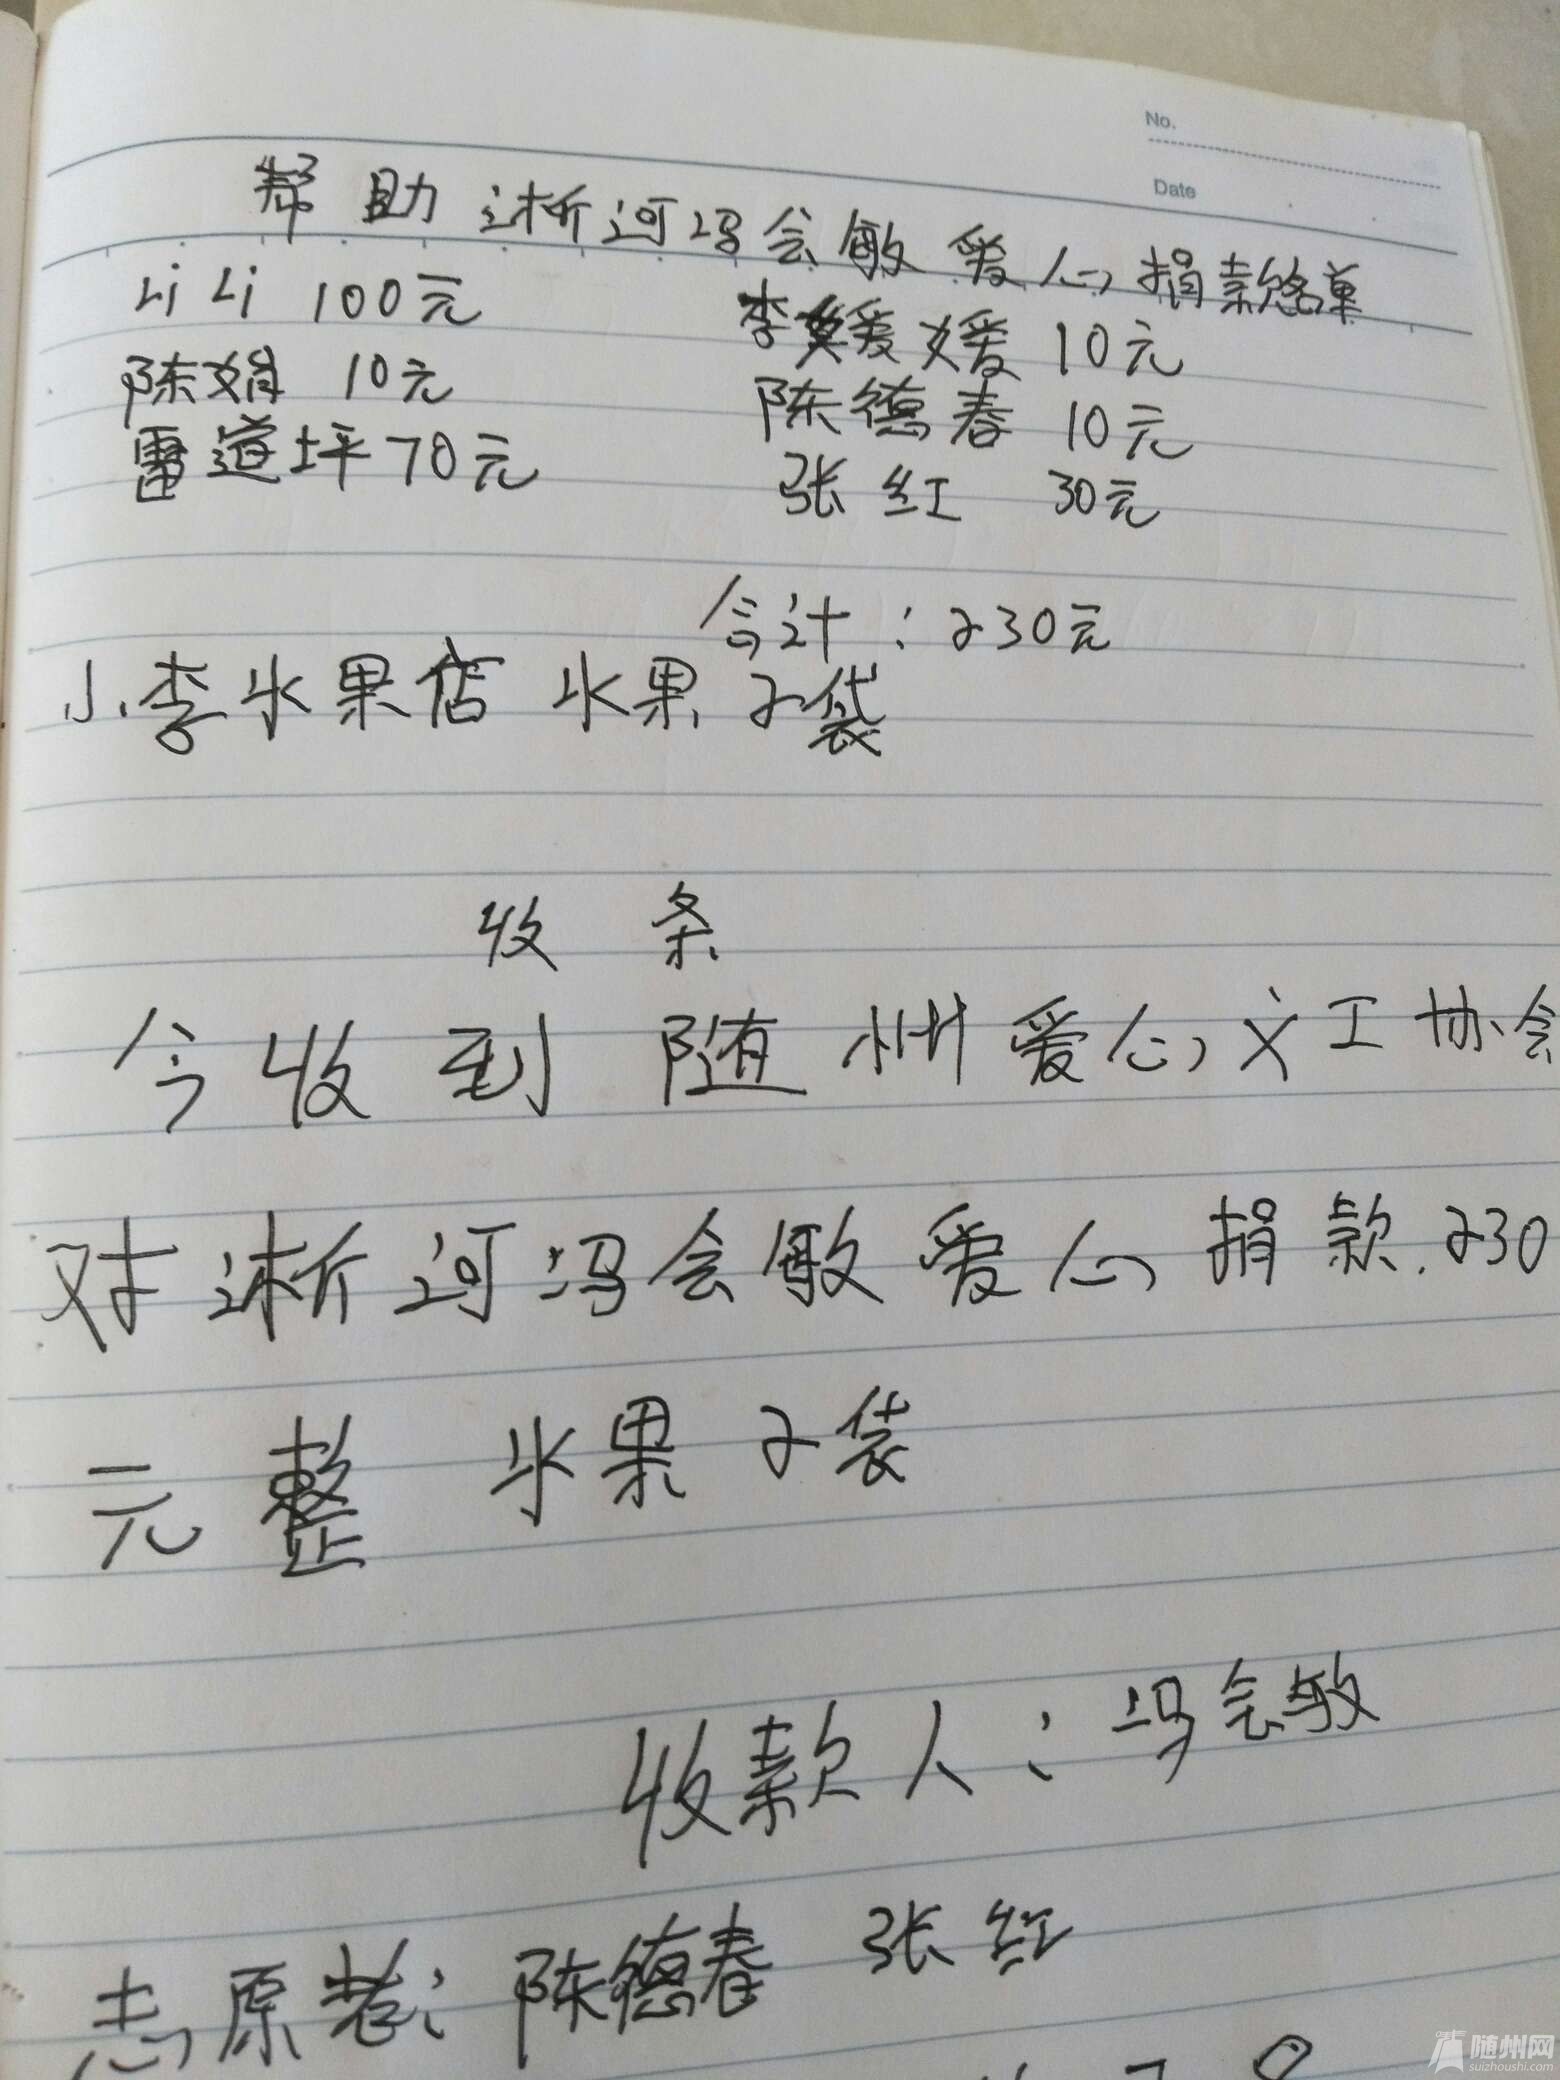 No.
Date
帮助淅河冯会敏爱心捐款名单
Li Li 100元 李媛媛 10元
陈娟 10元 陈德春 10元
雷道坪 70元 张红 30元
合计：230元
小李水果店 水果2袋
收条
今收到 随州爱心义工协会
对淅河冯会敏爱心捐款230
元整 水果2袋
收款人：冯会敏
志原者：陈德春 张红
随州网
suizhoushi.com